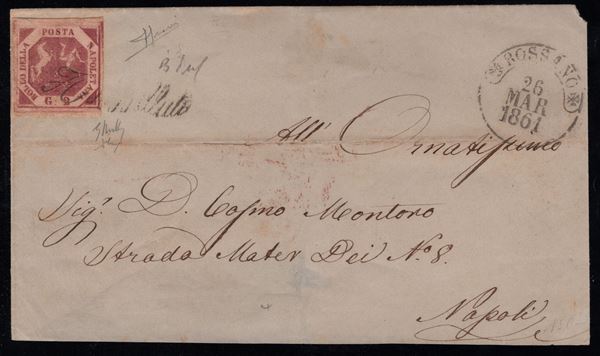 POSTA
NAPOLETANA
BOLLO DELLA
G. 2
ROSSANO
26
MAR
1861
All' Ornatissimo
Sig.r D. Cosmo Montoro
Strada Mater Dei No. 8.
Napoli